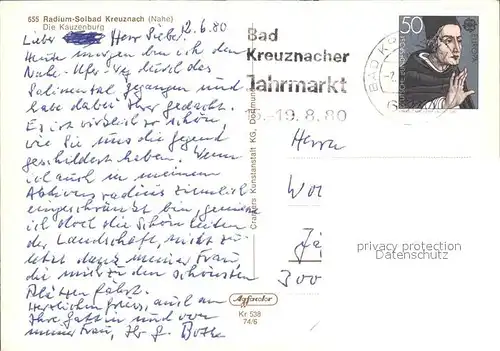 655 Radium-Solbad Kreuznach (Nahe)
Die Kauzenburg
12.6.80
Lieber Herr Siebe!
Heute morgen bin ich den
Nahe-Ufer-Weg durch das
Salinental gegangen und
habe dabei Ihrer gedacht.
Es ist wirklich so schön,
wie Sie uns die Gegend
geschildert haben. Wenn
ich auch in meinem
Aktionsradius ziemlich
eingeschränkt bin, genieße
ich doch die Schönheiten
der Landschaft, nicht zu-
letzt dank meiner Frau
die mich zu den schönsten
Plätzen fährt.
Herzlichen Gruss, auch an
Ihre Gattin und von
meiner Frau, Ihr G. Bothe
Cramers Kunstanstalt KG, Dortmund
Agfacolor
Kr 538
74/6
Bad
Kreuznacher
Jahrmarkt
-19.8.80
BAD
50
DEUTSCHE BUNDESPOST
EUROPA
Herrn
300
privacy protection